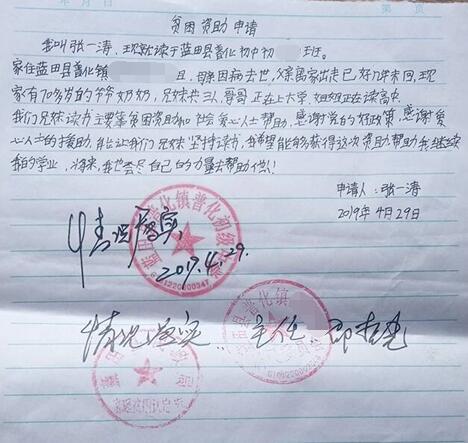 贫困资助申请
我叫张一涛，现就读于蓝田县普化初中初 班。
家住蓝田县普化镇 且，母亲因病去世，父亲离家出走已好几年未回，现
家有70多岁的爷爷奶奶，兄妹共三人，哥哥正在上大学，姐姐正在读高中，
我们兄妹读书主要靠贫困资助和社会爱心人士帮助，感谢党的好政策，感谢爱
心人士的援助，能让我们兄妹坚持读书，我希望能够获得这次资助，帮助我继续
我的学业，将来，我也会尽自己的力量去帮助他人！
申请人：张一涛
2019年4月29日
情况属实
2019.4.29.
蓝田县普化镇普化初级中学
情况属实 主任
蓝田县普化镇